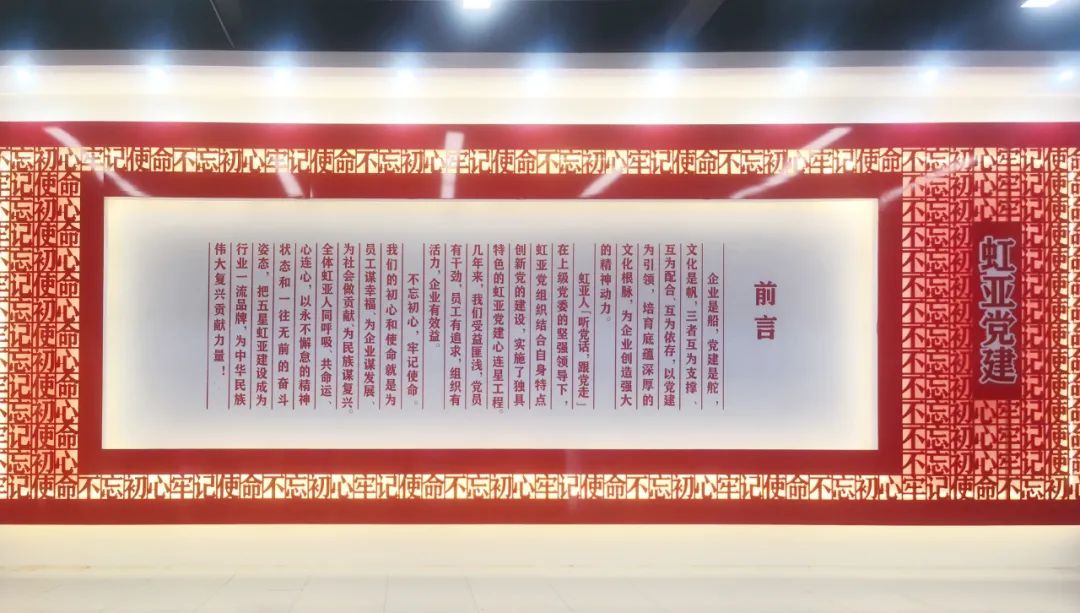 虹亚党建
前言
企业是船，党建是舵，
文化是帆，三者互为支撑、
互为配合、互为依存，以党建
为引领，培育底蕴深厚的
文化根脉，为企业创造强大
的精神动力。
虹亚人「听党话，跟党走」
在上级党委的坚强领导下，
虹亚党组织结合自身特点
创新党的建设，实施了独具
特色的虹亚党建心连星工程。
几年来，我们受益匪浅，党员
有干劲，员工有追求，组织有
活力，企业有效益。
不忘初心，牢记使命。
我们的初心和使命就是为
员工谋幸福、为企业谋发展、
为社会做贡献、为民族谋复兴。
全体虹亚人同呼吸、共命运、
心连心，以永不懈怠的精神
状态和一往无前的奋斗
姿态，把五星虹亚建设成为
行业一流品牌，为中华民族
伟大复兴贡献力量！
不忘初心牢记使命不忘初心牢记使命不忘初心牢记使命不忘初心牢记使命不忘初心牢记使命